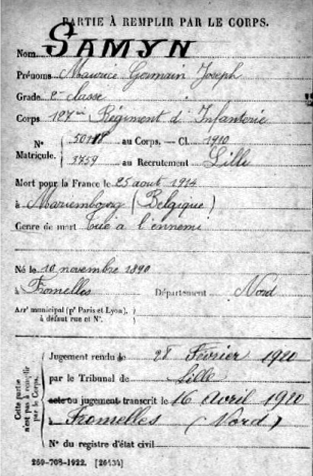 PARTIE À REMPLIR PAR LE CORPS.
Nom SAMYN
Prénoms Maurice Germain Joseph
Grade 2e classe
Corps 127me Régiment d'Infanterie
N° Matricule. 50118 au Corps. — Cl. 1910
3759 au Recrutement Lille
Mort pour la France le 25 aout 1914
à Mariembourg (Belgique)
Genre de mort Tué à l'ennemi
Né le 10 novembre 1890
à Fromelles Département Nord
Arrt municipal (pr Paris et Lyon),
à défaut rue et N°.
Cette partie n'est pas à remplir par le Corps.
Jugement rendu le 28 Février 1920
par le Tribunal de Lille
acte ou jugement transcrit le 16 avril 1920
à Fromelles (Nord)
N° du registre d'état civil
269-708-1922. [26434]